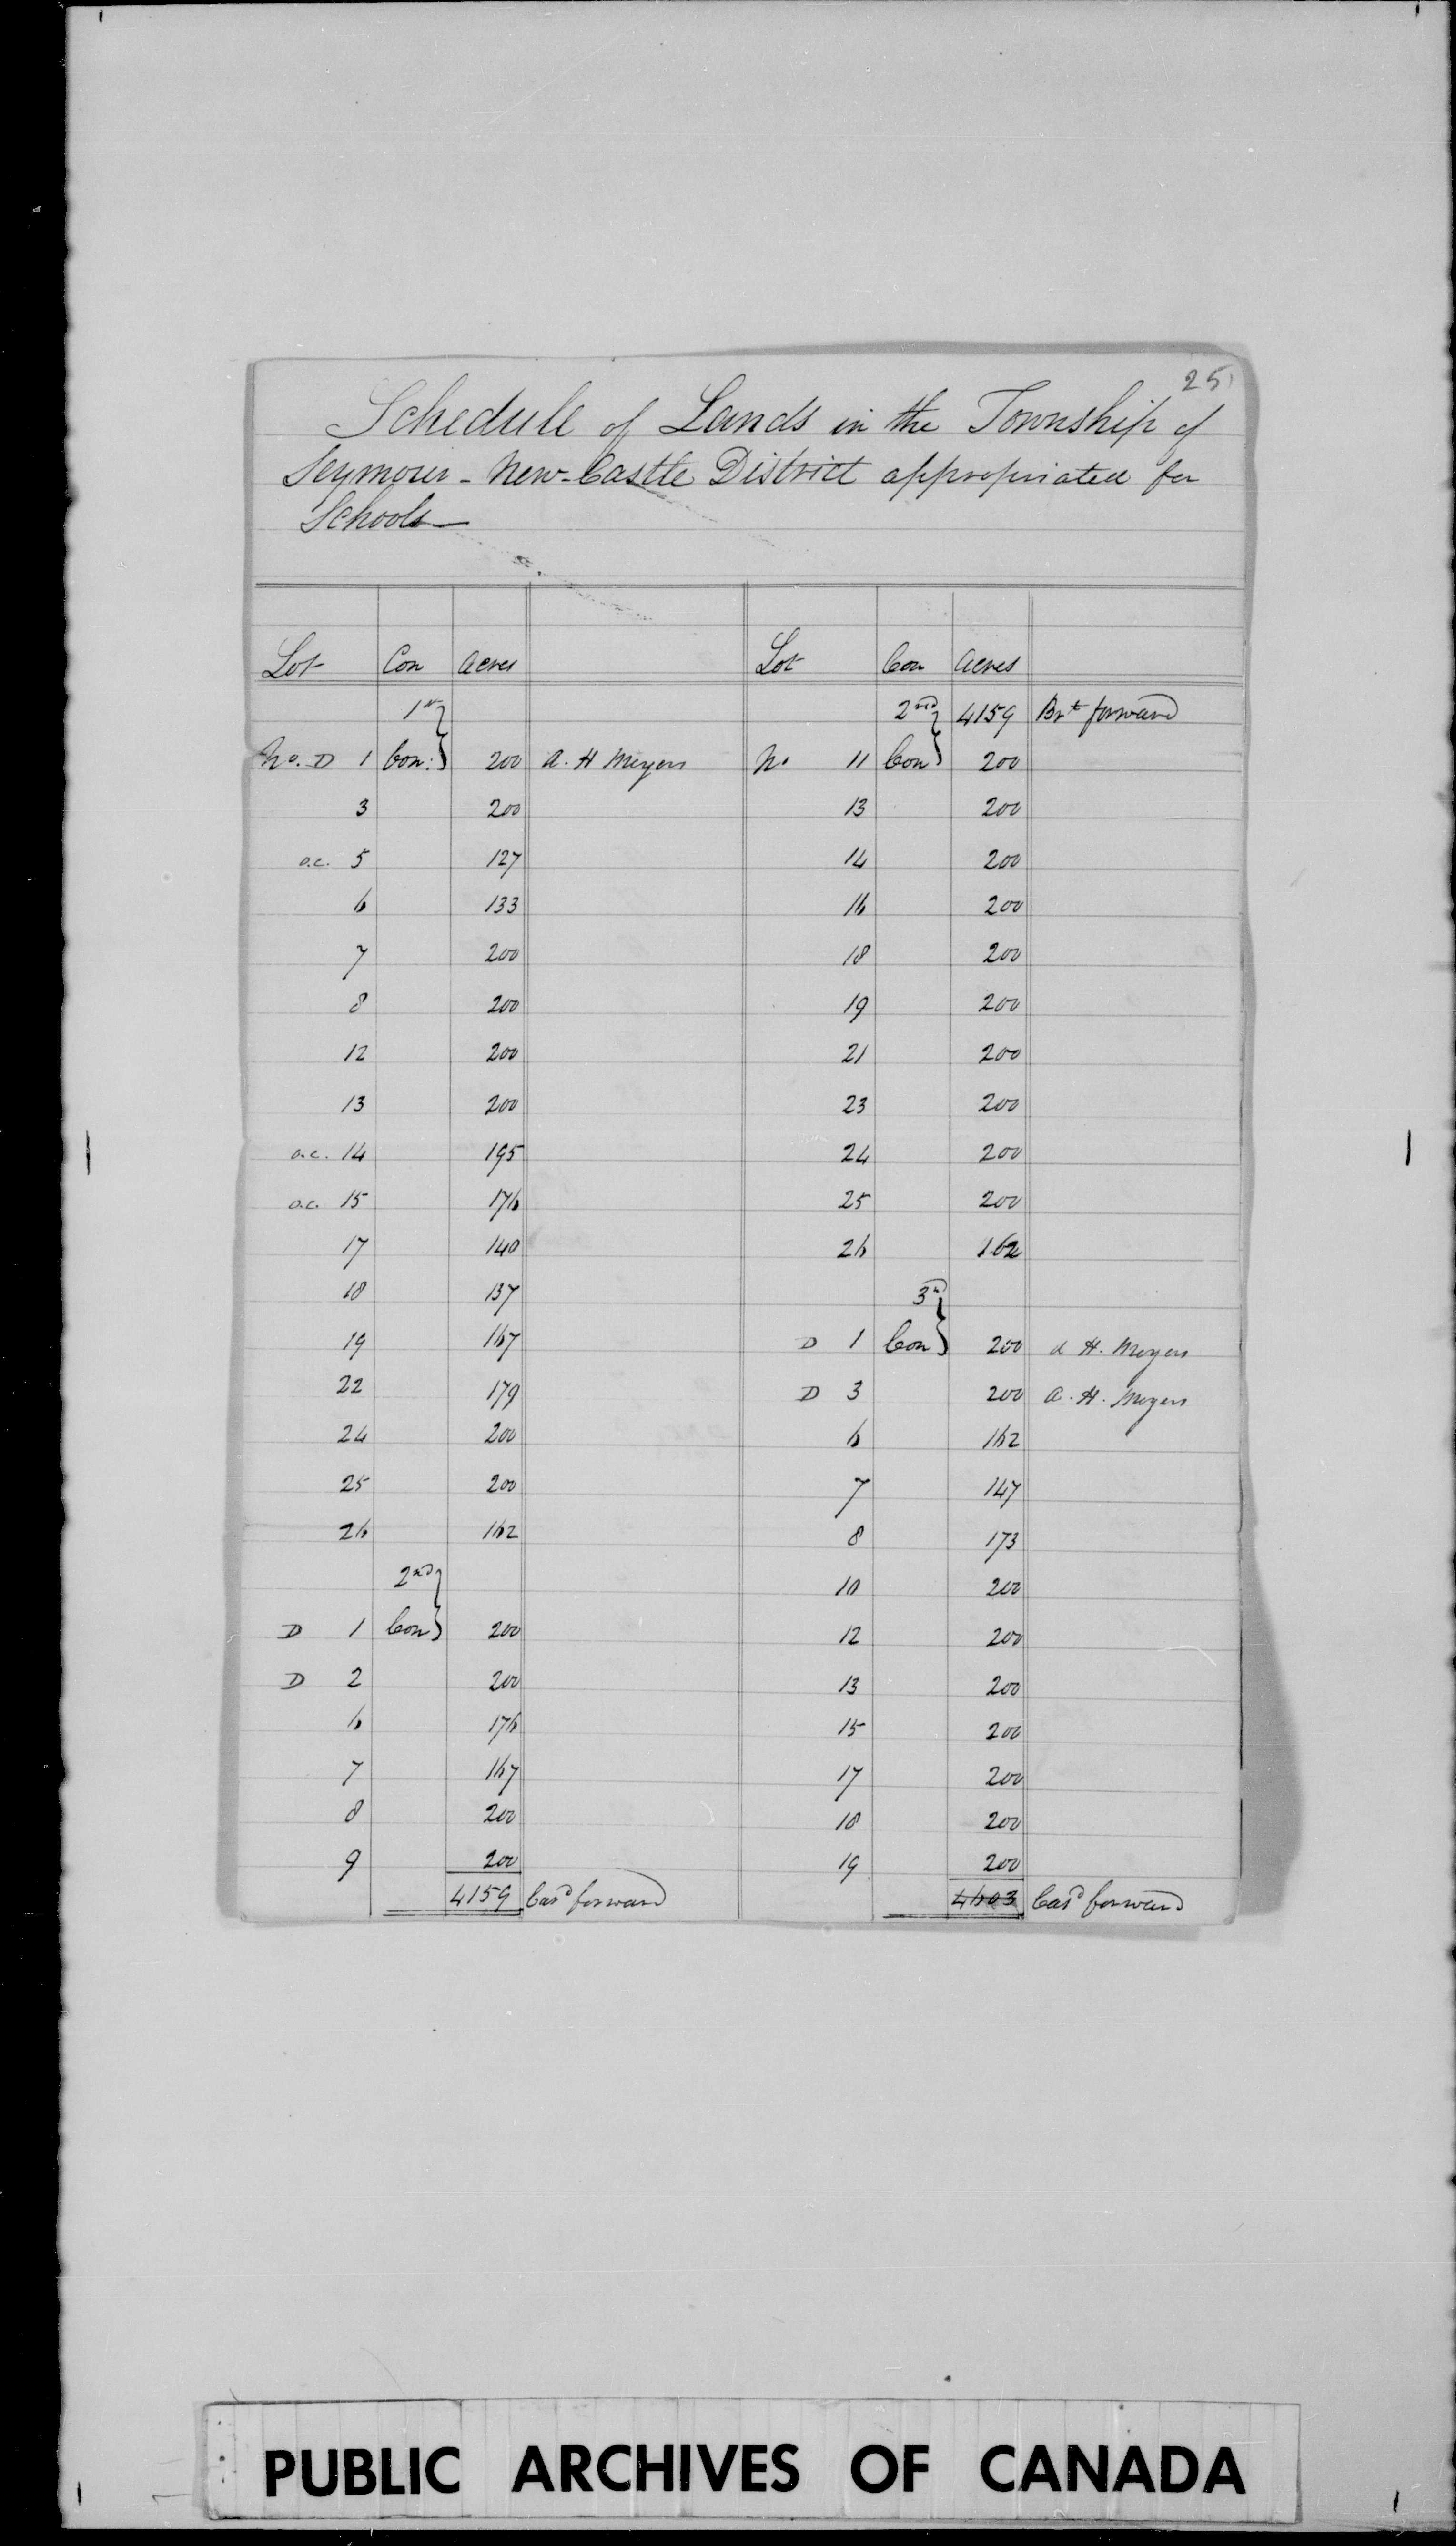 25
Schedule of Lands in the Township of
Seymour - New-Castle District appropriated for
Schools —
Lot Con Acres
1st
No. D 1 Con: 200 A. H Meyers
3 200
o.c. 5 127
6 133
7 200
8 200
12 200
13 200
o.c. 14 195
o.c. 15 176
17 140
18 137
19 167
22 179
24 200
25 200
26 162
2nd
D 1 Con 200
D 2 200
6 176
7 167
8 200
9 200
4159 Card forward
Lot Con Acres
2nd 4159 Brt forward
No 11 Con 200
13 200
14 200
16 200
18 200
19 200
21 200
23 200
24 200
25 200
26 162
3d
D 1 Con 200 A H. Meyers
D 3 200 A. H. Meyers
6 162
7 147
8 173
10 200
12 200
13 200
15 200
17 200
18 200
19 200
4603 Card forward
PUBLIC ARCHIVES OF CANADA